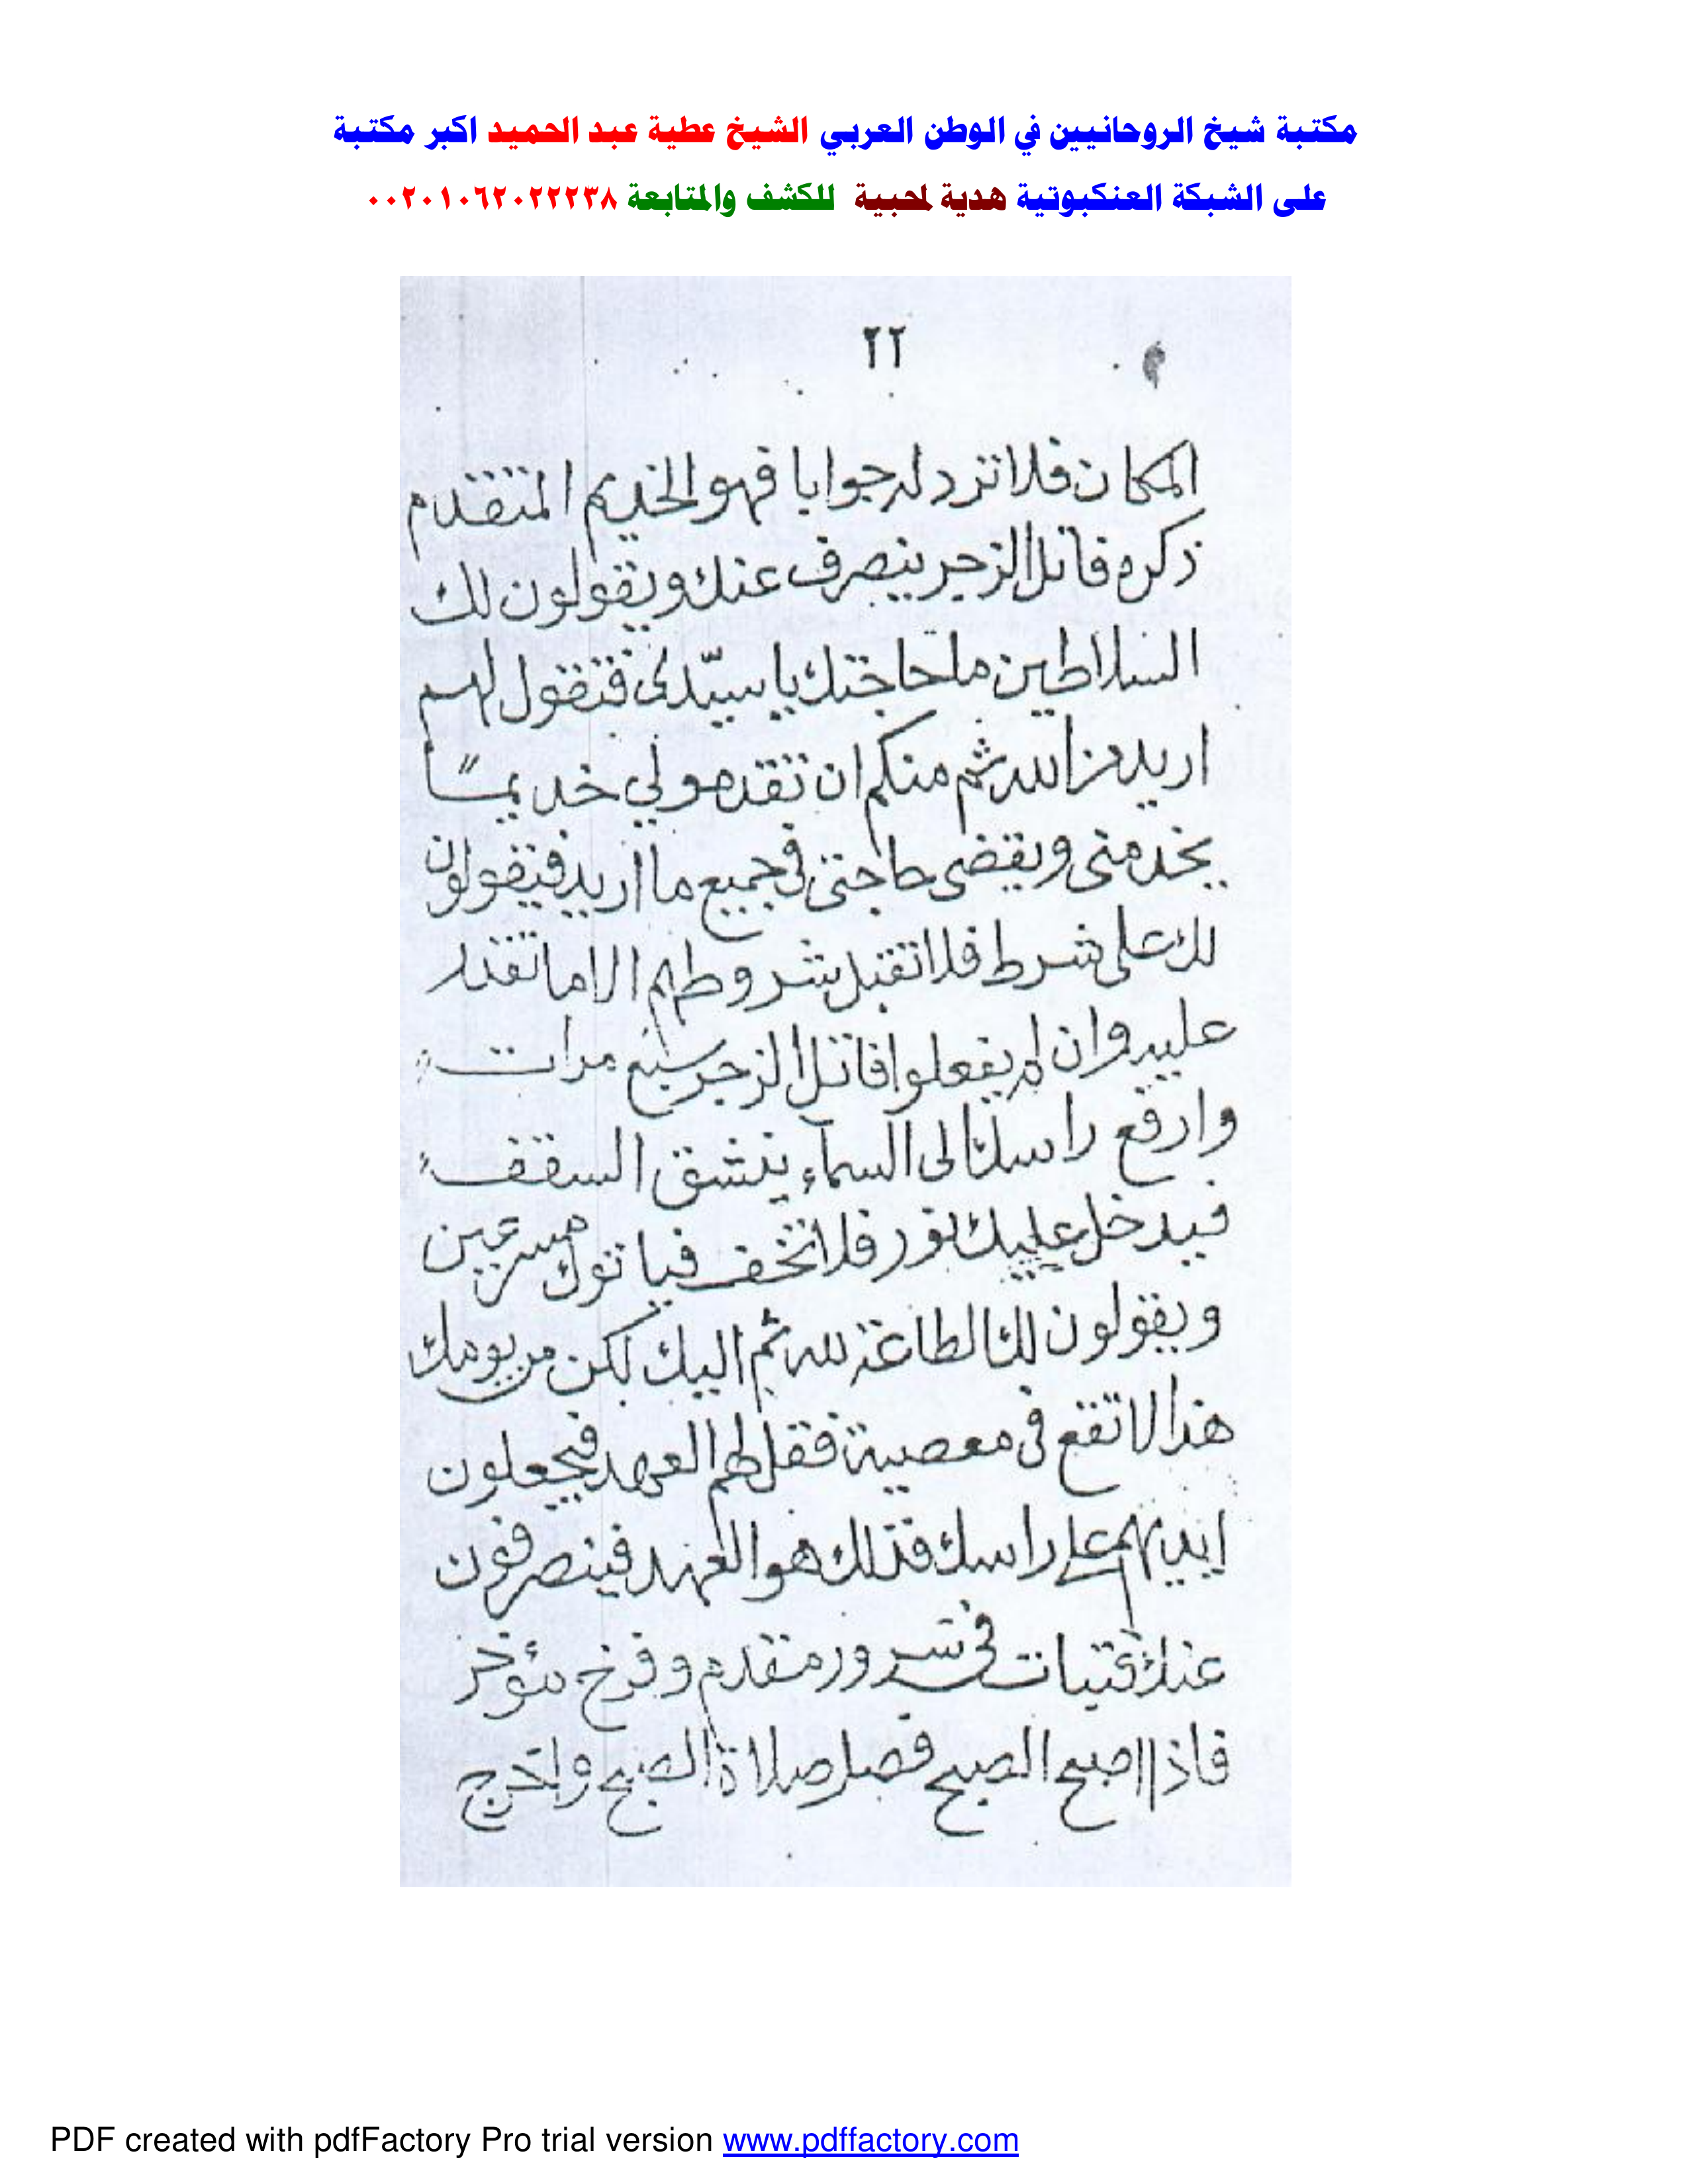 مكتبة شيخ الروحانيين في الوطن العربي الشيخ عطية عبد الحميد اكبر مكتبة
على الشبكة العنكبوتية هدية لمحبية للكشف والمتابعة ٠٠٢٠١٠٦٢٠٢٢٢٣٨
٢٢
المكان فلا ترد له جوابا فهو الخديم المتقدم
ذكره فاتل الزجر ينصرف عنك ويقولون لك
السلاطين ما حاجتك يا سيّدى فتقول لهم
اريد من الله ثم منكم ان تقدمو لي خديمًا
يخدمنى ويقضى حاجتى فى جميع ما اريد فيقولون
لك على شرط فلا تقبل شروطهم الا ما تقدر
عليه وان لم يفعلوا فاتل الزجر سبع مرات
وارفع راسك الى السماء ينشق السقف
فيدخل عليك نور فلا تخف فياتوك مسرعين
ويقولون لك الطاعة لله ثم اليك لكن من يومك
هذا لا تقع فى معصية فقل لهم العهد فيجعلون
ايديهم على راسك فذلك هو العهد فينصرفون
عنك فتبات فى سرور متقدم وفرح مؤخر
فاذا اصبح الصبح فصل صلاة الصبح واخرج
PDF created with pdfFactory Pro trial version www.pdffactory.com